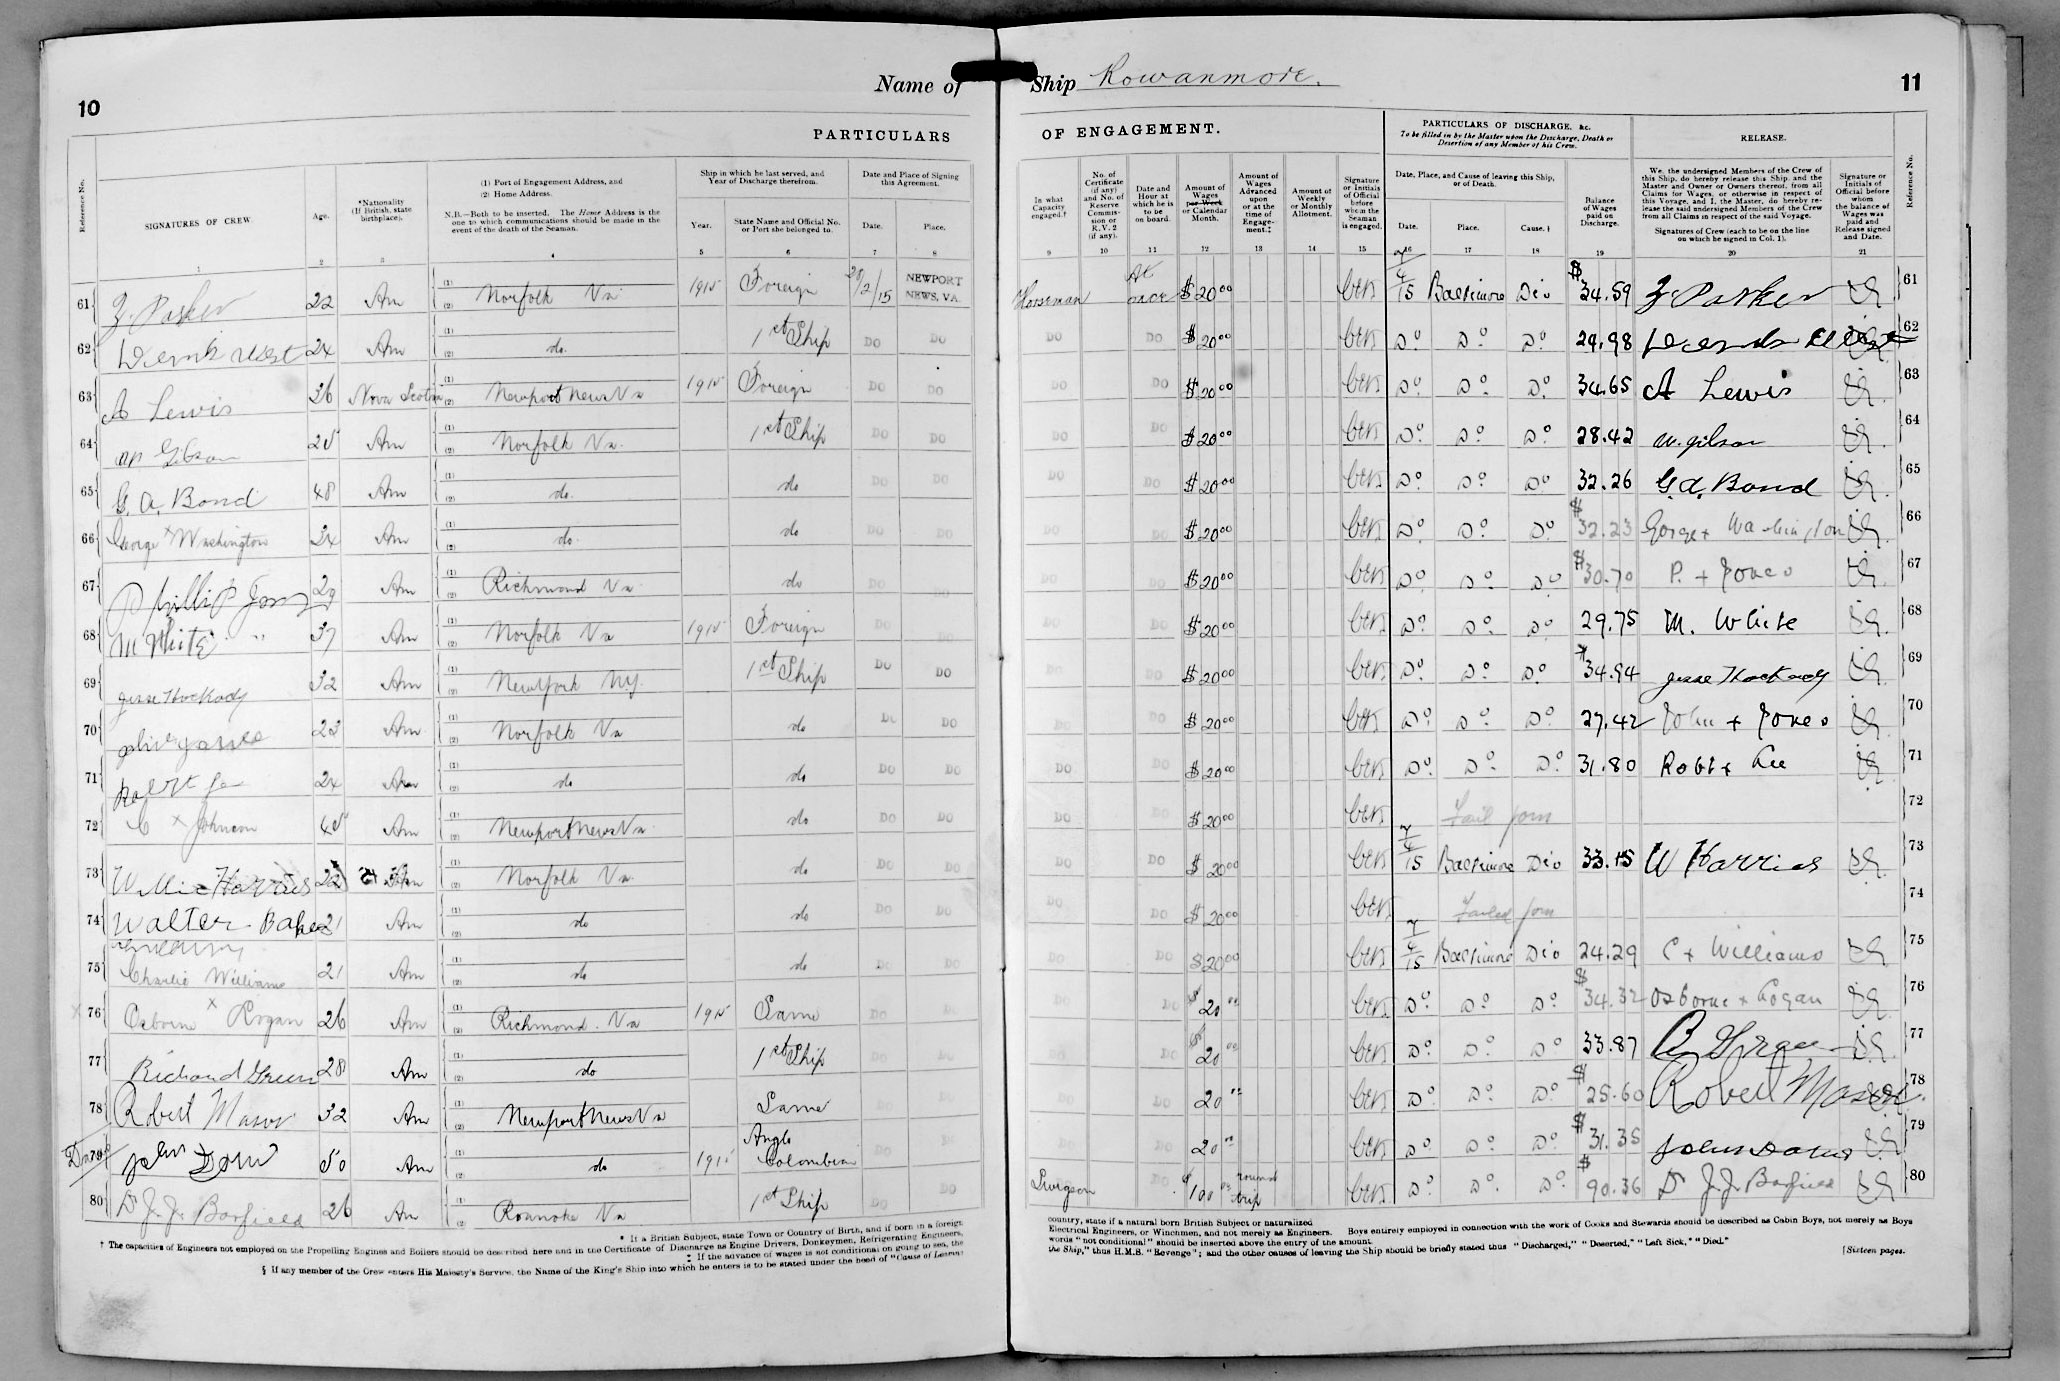 10
Name of
PARTICULARS
Reference No.
SIGNATURES OF CREW.
Age.
*Nationality
(If British, state
birthplace).
(1) Port of Engagement Address, and
(2) Home Address.
N.B.—Both to be inserted. The Home Address is the
one to which communications should be made in the
event of the death of the Seaman.
Ship in which he last served, and
Year of Discharge therefrom.
Year.
State Name and Official No.
or Port she belonged to.
Date and Place of Signing
this Agreement.
Date.
Place.
1 2 3 4 5 6 7 8
61 Z. Parker 22 Am (1) (2) Norfolk Va 1915 Foreign 28/2/15 NEWPORT NEWS, VA.
62 West 24 Am (1) (2) do. 1st Ship DO DO
63 A Lewis 36 Nova Scotia (1) (2) Newport News Va 1915 Foreign DO DO
64 W Gibson 25 Am (1) (2) Norfolk Va. 1st Ship DO DO
65 G. A. Bond 48 Am (1) (2) do. do DO DO
66 George x Washington 34 Am (1) (2) do. do DO DO
67 Phillip Jones 29 Am (1) (2) Richmond Va do DO DO
68 M White 37 Am (1) (2) Norfolk Va 1915 Foreign DO DO
69 Jesse Hockady 32 Am (1) (2) New York N.Y. 1st Ship DO DO
70 23 Am (1) (2) Norfolk Va do DO DO
71 24 Am (1) (2) do do DO DO
72 C x Johnson 45 Am (1) (2) Newport News Va. do DO DO
73 Willie Harris 22 Am (1) (2) Norfolk Va. do DO DO
74 Walter Baker 21 Am (1) (2) do do DO DO
75 Charlie Williams 21 Am (1) (2) do do DO DO
x 76 Osborne x Logan 26 Am (1) (2) Richmond. Va 1915 Same DO DO
77 Richard Green 28 Am (1) (2) do 1st Ship DO DO
78 Robert Mason 32 Am (1) (2) Newport News Va Same DO DO
79 John 50 Am (1) (2) do 1915 Anglo Colombian DO DO
80 Dr J. J. Barfield 26 Am (1) (2) Roanoke Va 1st Ship DO DO
* If a British Subject, state Town or Country of Birth, and if born in a foreign
† The capacities of Engineers not employed on the Propelling Engines and Boilers should be described here and in the Certificate of Discharge as Engine Drivers, Donkeymen, Refrigerating Engineers,
‡ If the advance of wages is not conditional on going to sea, the
§ If any member of the Crew enters His Majesty's Service, the Name of the King's Ship into which he enters is to be stated under the head of "Cause of Leaving
Ship Rowanmore.
11
OF ENGAGEMENT.
In what
Capacity
engaged.†
No. of
Certificate
(if any)
and No. of
Reserve
Commis-
sion or
R.V. 2
(if any).
Date and
Hour at
which he is
to be
on board.
Amount of
Wages
per Week
or Calendar
Month.
Amount of
Wages
Advanced
upon
or at the
time of
Engage-
ment.‡
Amount of
Weekly
or Monthly
Allotment.
Signature
or Initials
of Official
before
whom the
Seaman
is engaged.
PARTICULARS OF DISCHARGE, &c.
To be filled in by the Master upon the Discharge, Death or
Desertion of any Member of his Crew.
Date, Place, and Cause of leaving this Ship,
or of Death.
Date.
Place.
Cause.§
Balance
of Wages
paid on
Discharge.
RELEASE.
We, the undersigned Members of the Crew of
this Ship, do hereby release this Ship, and the
Master and Owner or Owners thereof, from all
Claims for Wages, or otherwise in respect of
this Voyage, and I, the Master, do hereby re-
lease the said undersigned Members of the Crew
from all Claims in respect of the said Voyage.
Signatures of Crew (each to be on the line
on which he signed in Col. 1).
Signature or
Initials of
Official before
whom
the balance of
Wages was
paid and
Release signed
and Date.
Reference No.
9 10 11 12 13 14 15 16 17 18 19 20 21
Horseman At once $ 20 00 7/4/15 Baltimore Dis $ 34.59 Z Parker 61
DO DO $ 20 00 Do Do Do 24.98 62
DO DO $ 20 00 Do Do Do 34.65 A Lewis 63
DO DO $ 20 00 Do Do Do 28.42 W. Gibson 64
DO DO $ 20 00 Do Do Do 32.26 G. A. Bond 65
DO DO $ 20 00 Do Do Do $ 32.23 George x Washington 66
DO DO $ 20 00 Do Do Do $ 30.70 P. + Jones 67
DO DO $ 20 00 Do Do Do 29.75 M. White 68
DO DO $ 20 00 Do Do Do 34.94 Jesse Hockady 69
DO DO $ 20 00 Do Do Do 27.42 John + Jones 70
DO DO $ 20 00 Do Do Do 31.80 Robt x Lee 71
DO DO $ 20 00 Fail join 72
DO DO $ 20 00 7/4/15 Baltimore Dis 33.15 W Harries 73
DO DO $ 20 00 Failed join 74
DO DO $ 20 00 7/4/15 Baltimore Dis 24.29 C x Williams 75
DO DO $ 20 00 Do Do Do $ 34.32 Osborne x Logan 76
DO DO $ 20 00 Do Do Do 33.87 77
DO DO 20 00 Do Do Do $ 25.60 Robert Mason 78
DO DO 20 00 Do Do Do $ 31.35 John 79
Surgeon DO $ 100 00 round trip Do Do Do $ 90.36 Dr J. J. Barfield 80
country, state if a natural born British Subject or naturalized
Electrical Engineers, or Winchmen, and not merely as Engineers. Boys entirely employed in connection with the work of Cooks and Stewards should be described as Cabin Boys, not merely as Boys
words "not conditional" should be inserted above the entry of the amount.
the Ship," thus H.M.S. "Revenge"; and the other causes of leaving the Ship should be briefly stated thus "Discharged," "Deserted," "Left Sick," "Died."
[Sixteen pages.